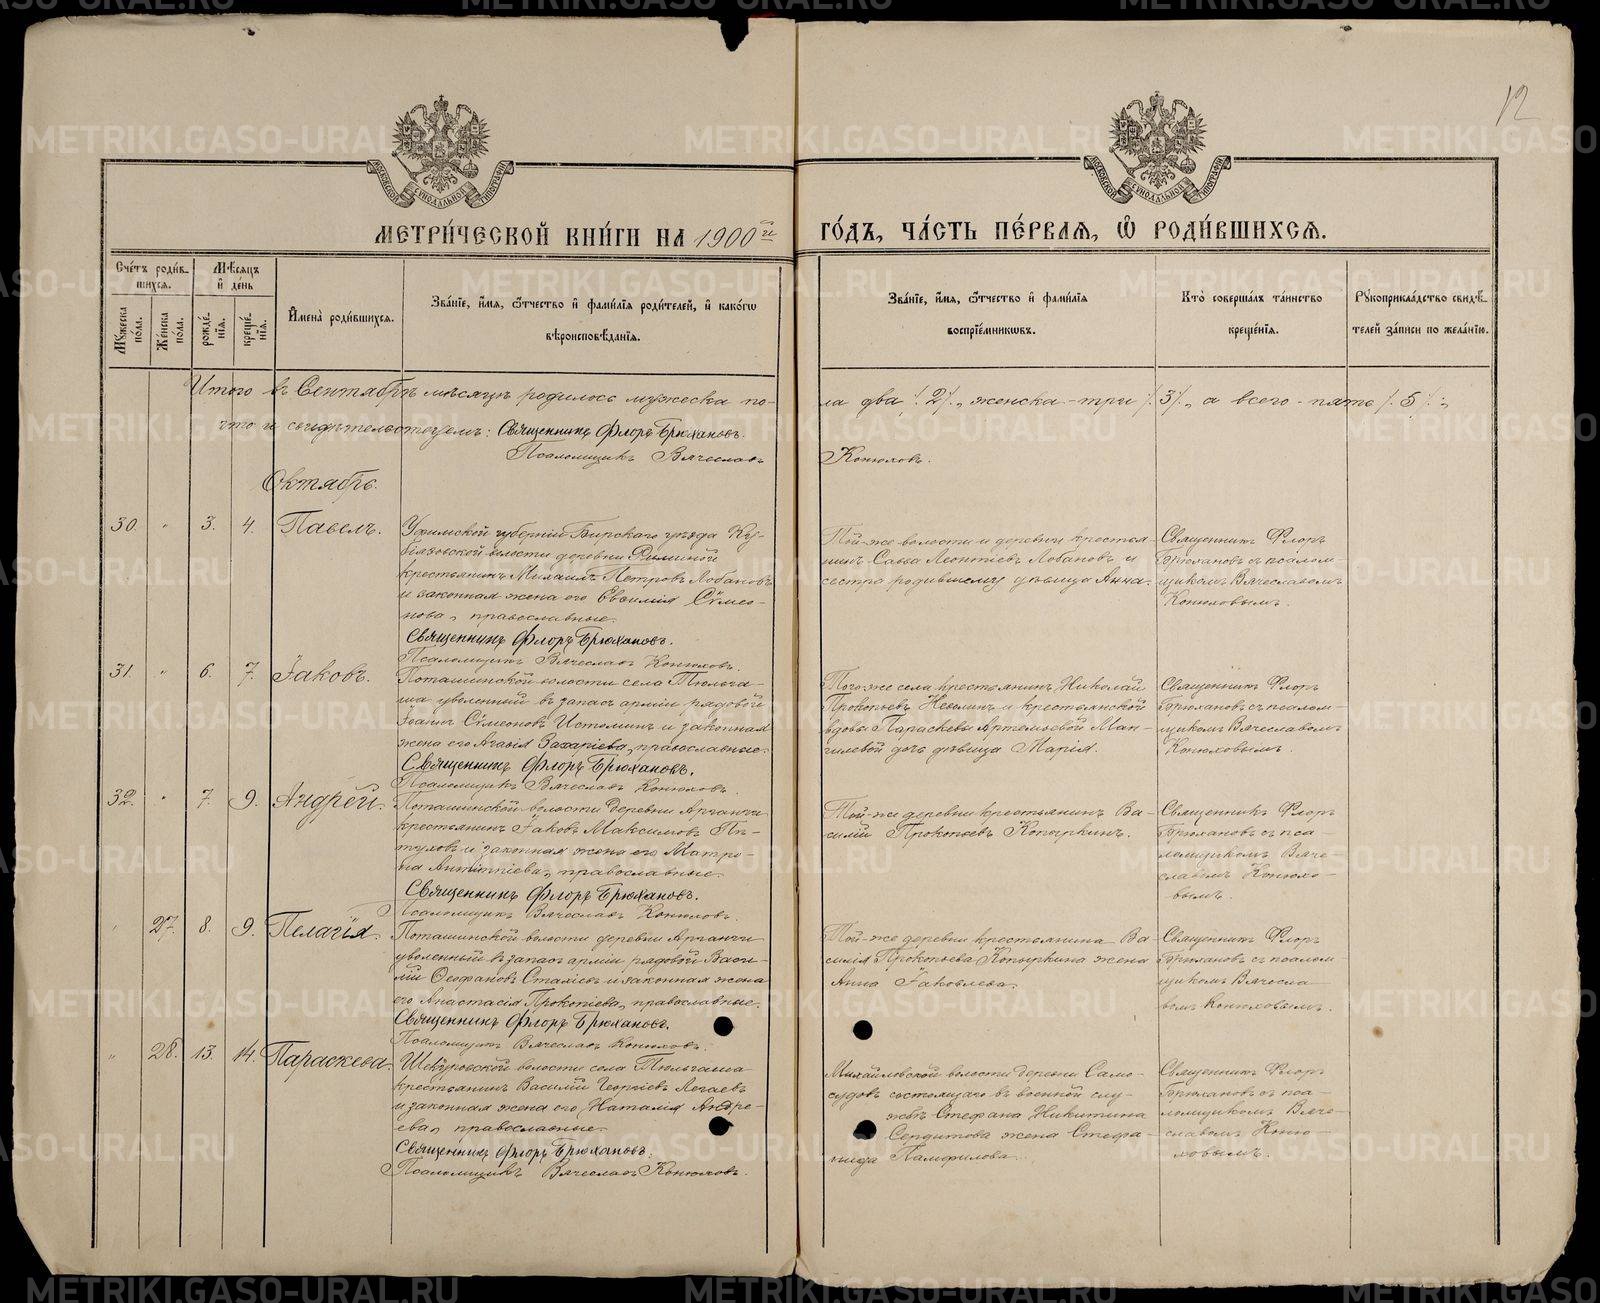 METRIKI.GASO-URAL.RU
12
МОСКОВСКОЙ СѴНОДАЛЬНОЙ ТИПОГРАФІИ
МОСКОВСКОЙ СѴНОДАЛЬНОЙ ТИПОГРАФІИ
МЕТРИ́ЧЕСКОЙ КНИ́ГИ НА 1900й ГО́ДЪ, ЧА́СТЬ ПЕ́РВАЯ, Ѡ РОДИ́ВШИХСЯ.
Сче́тъ роди́вшихся.
Мѣсяцъ и де́нь
Мꙋ́жеска пола.
Же́нска пола.
рожде́нїя.
креще́нїя.
И҆мена̀ роди́вшихся.
Зва́нїе, и҆́мя, ѻ҆́тчество и҆ фами́лїя роди́телей, и҆ како́гѡ
вѣроисповѣ́данїя.
Зва́нїе, и҆́мя, ѻ҆́тчество и҆ фами́лїя
воспрїе́мникѡвъ.
Кто̀ соверша́лъ та́инство
креще́нїя.
Рꙋкоприкла́дство свидѣ́-
телей за́писи по жела́нїю.
Итого въ Сентябрѣ мѣсяцѣ родилось мужеска по-
ла два /2/, женска - три /3/, а всего - пять /5/,
что и свидѣтельствуемъ: Священникъ Флоръ Брюхановъ.
Псаломщикъ Вячеславъ
Конюховъ.
Октябрь.
30. " 3. 4. Павелъ.
Уфимской губерніи Бирскаго уѣзда
волости деревни
крестьянинъ Михаилъ Петровъ Лобановъ
и законная жена его Евѳимія Сѷмео-
нова, православные.
Священникъ Флоръ Брюхановъ.
Псаломщикъ Вячеславъ Конюховъ.
Той-же волости и деревни крестья-
нинъ Савва Леонтіевъ Лобановъ и
сестра родившему дѣвица Анна.
Священникъ Флоръ
Брюхановъ съ псалом-
щикомъ Вячеславомъ
Конюховымъ.
31. " 6. 7. Іаковъ.
Поташинской волости села Тюльга-
ша уволенный въ запасъ арміи рядовой
Іоаннъ Сѷмеоновъ Истоминъ и законная
жена его Агаѳія Захаріева, православные.
Священникъ Флоръ Брюхановъ.
Псаломщикъ Вячеславъ Конюховъ.
Того-же села крестьянинъ Николай
Прокопьевъ и крестьянской
вдовы Параскевы Артемьевой Ман-
гилевой дочь дѣвица Марія.
Священникъ Флоръ
Брюхановъ съ псалом-
щикомъ Вячеславомъ
Конюховымъ.
32. " 7. 9. Андрей.
Поташинской волости деревни Артанчи
крестьянинъ Іаковъ Максимовъ Пѣ-
туховъ и законная жена его Матро-
на православные.
Священникъ Флоръ Брюхановъ.
Псаломщикъ Вячеславъ Конюховъ.
Той-же деревни крестьянинъ Ва-
силій Прокопьевъ Копыркинъ.
Священникъ Флоръ
Брюхановъ съ пса-
ломщикомъ Вяче-
славомъ Конюхо-
вымъ.
" 27. 8. 9. Пелагія.
Поташинской волости деревни Артанчи
уволенный въ запасъ арміи рядовой Васи-
лій Ѳеофановъ Стахіевъ и законная жена
его Анастасія Прокопіева, православные.
Священникъ Флоръ Брюхановъ.
Псаломщикъ Вячеславъ Конюховъ.
Той-же деревни крестьянина Ва-
силія Прокопьева Копыркина жена
Анна Іаковлева.
Священникъ Флоръ
Брюхановъ съ псалом
щикомъ Вячесла-
вомъ Конюховымъ.
" 28. 13. 14. Параскева.
волости села Тюльгаша
крестьянинъ Василій Георгіевъ Легаевъ
и законная жена его Наталія Андре-
ева, православные.
Священникъ Флоръ Брюхановъ.
Псаломщикъ Вячеславъ Конюховъ.
Михайловской волости деревни Само-
судовъ состоящаго въ военной слу-
жбѣ Стефана Никитина
Сердитова жена Стефа-
нида Памфилова.
Священникъ Флоръ
Брюхановъ съ пса-
ломщикомъ Вяче-
славомъ Коню-
ховымъ.